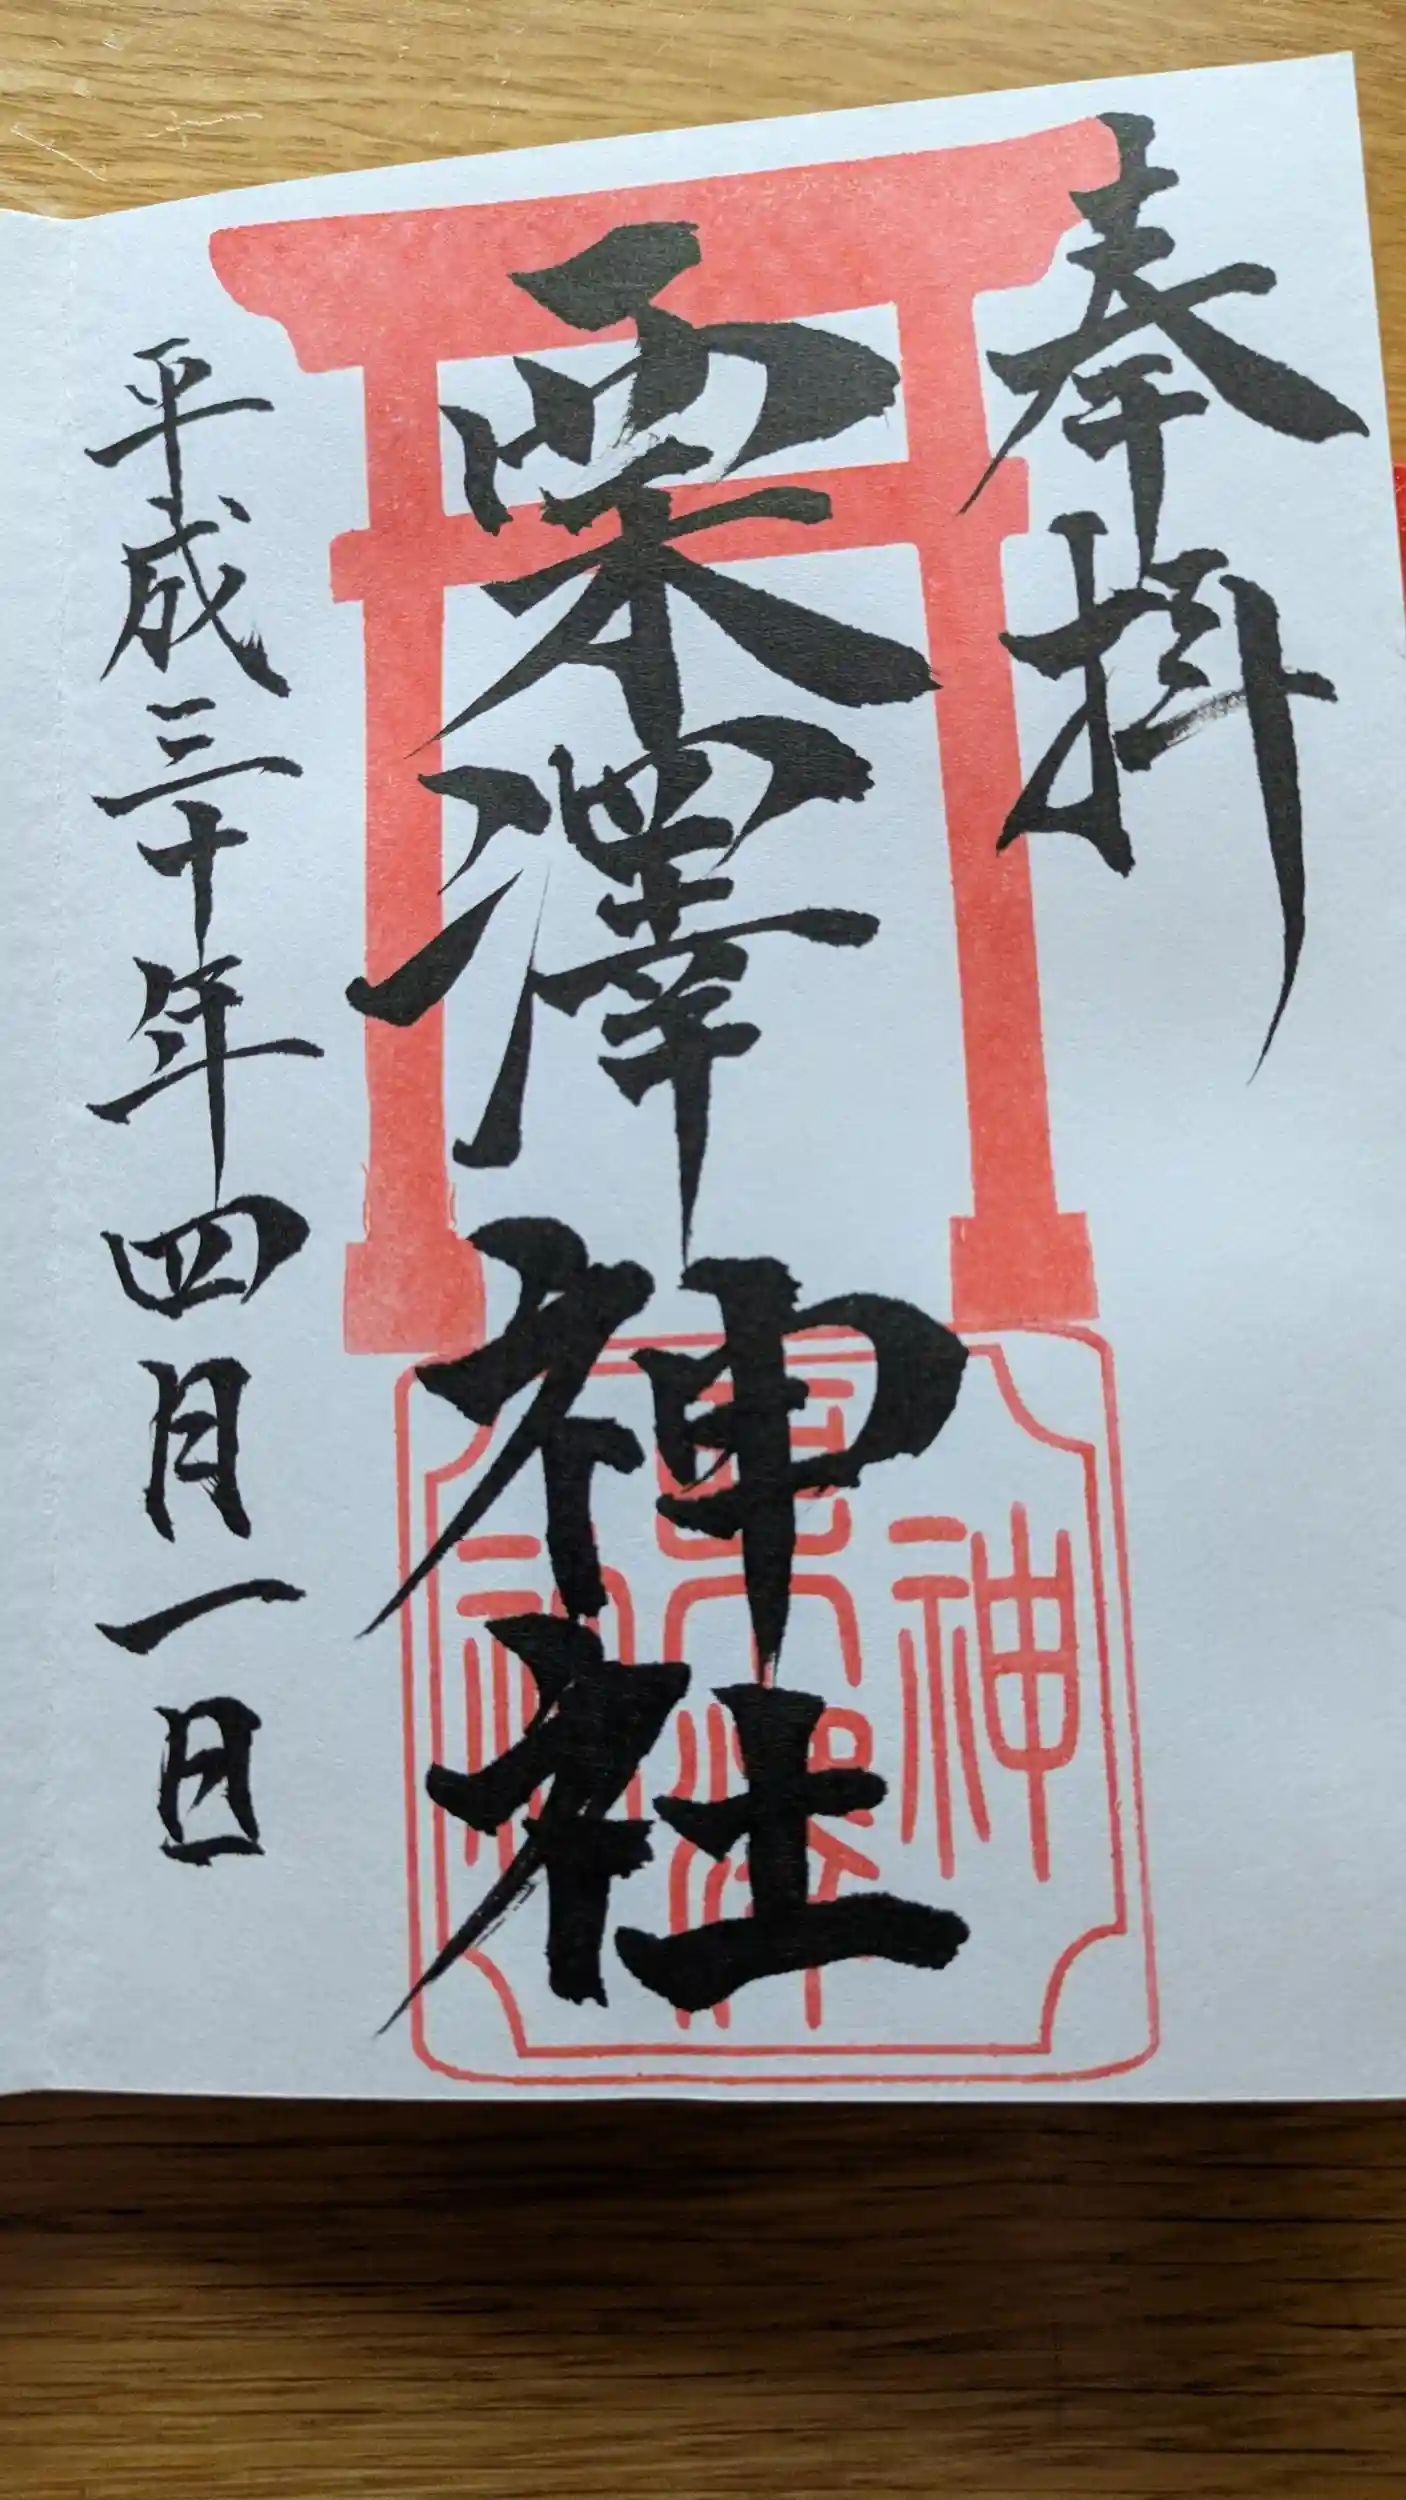 奉拝
栗澤神社
平成三十年四月一日
神
栗澤
社